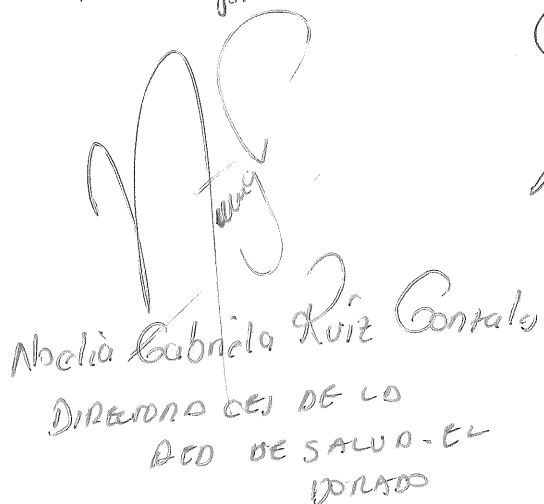 Noelia Gabriela Ruiz Gonzales
DIRECTORA CEJ DE LA
RED DE SALUD - EL
DORADO